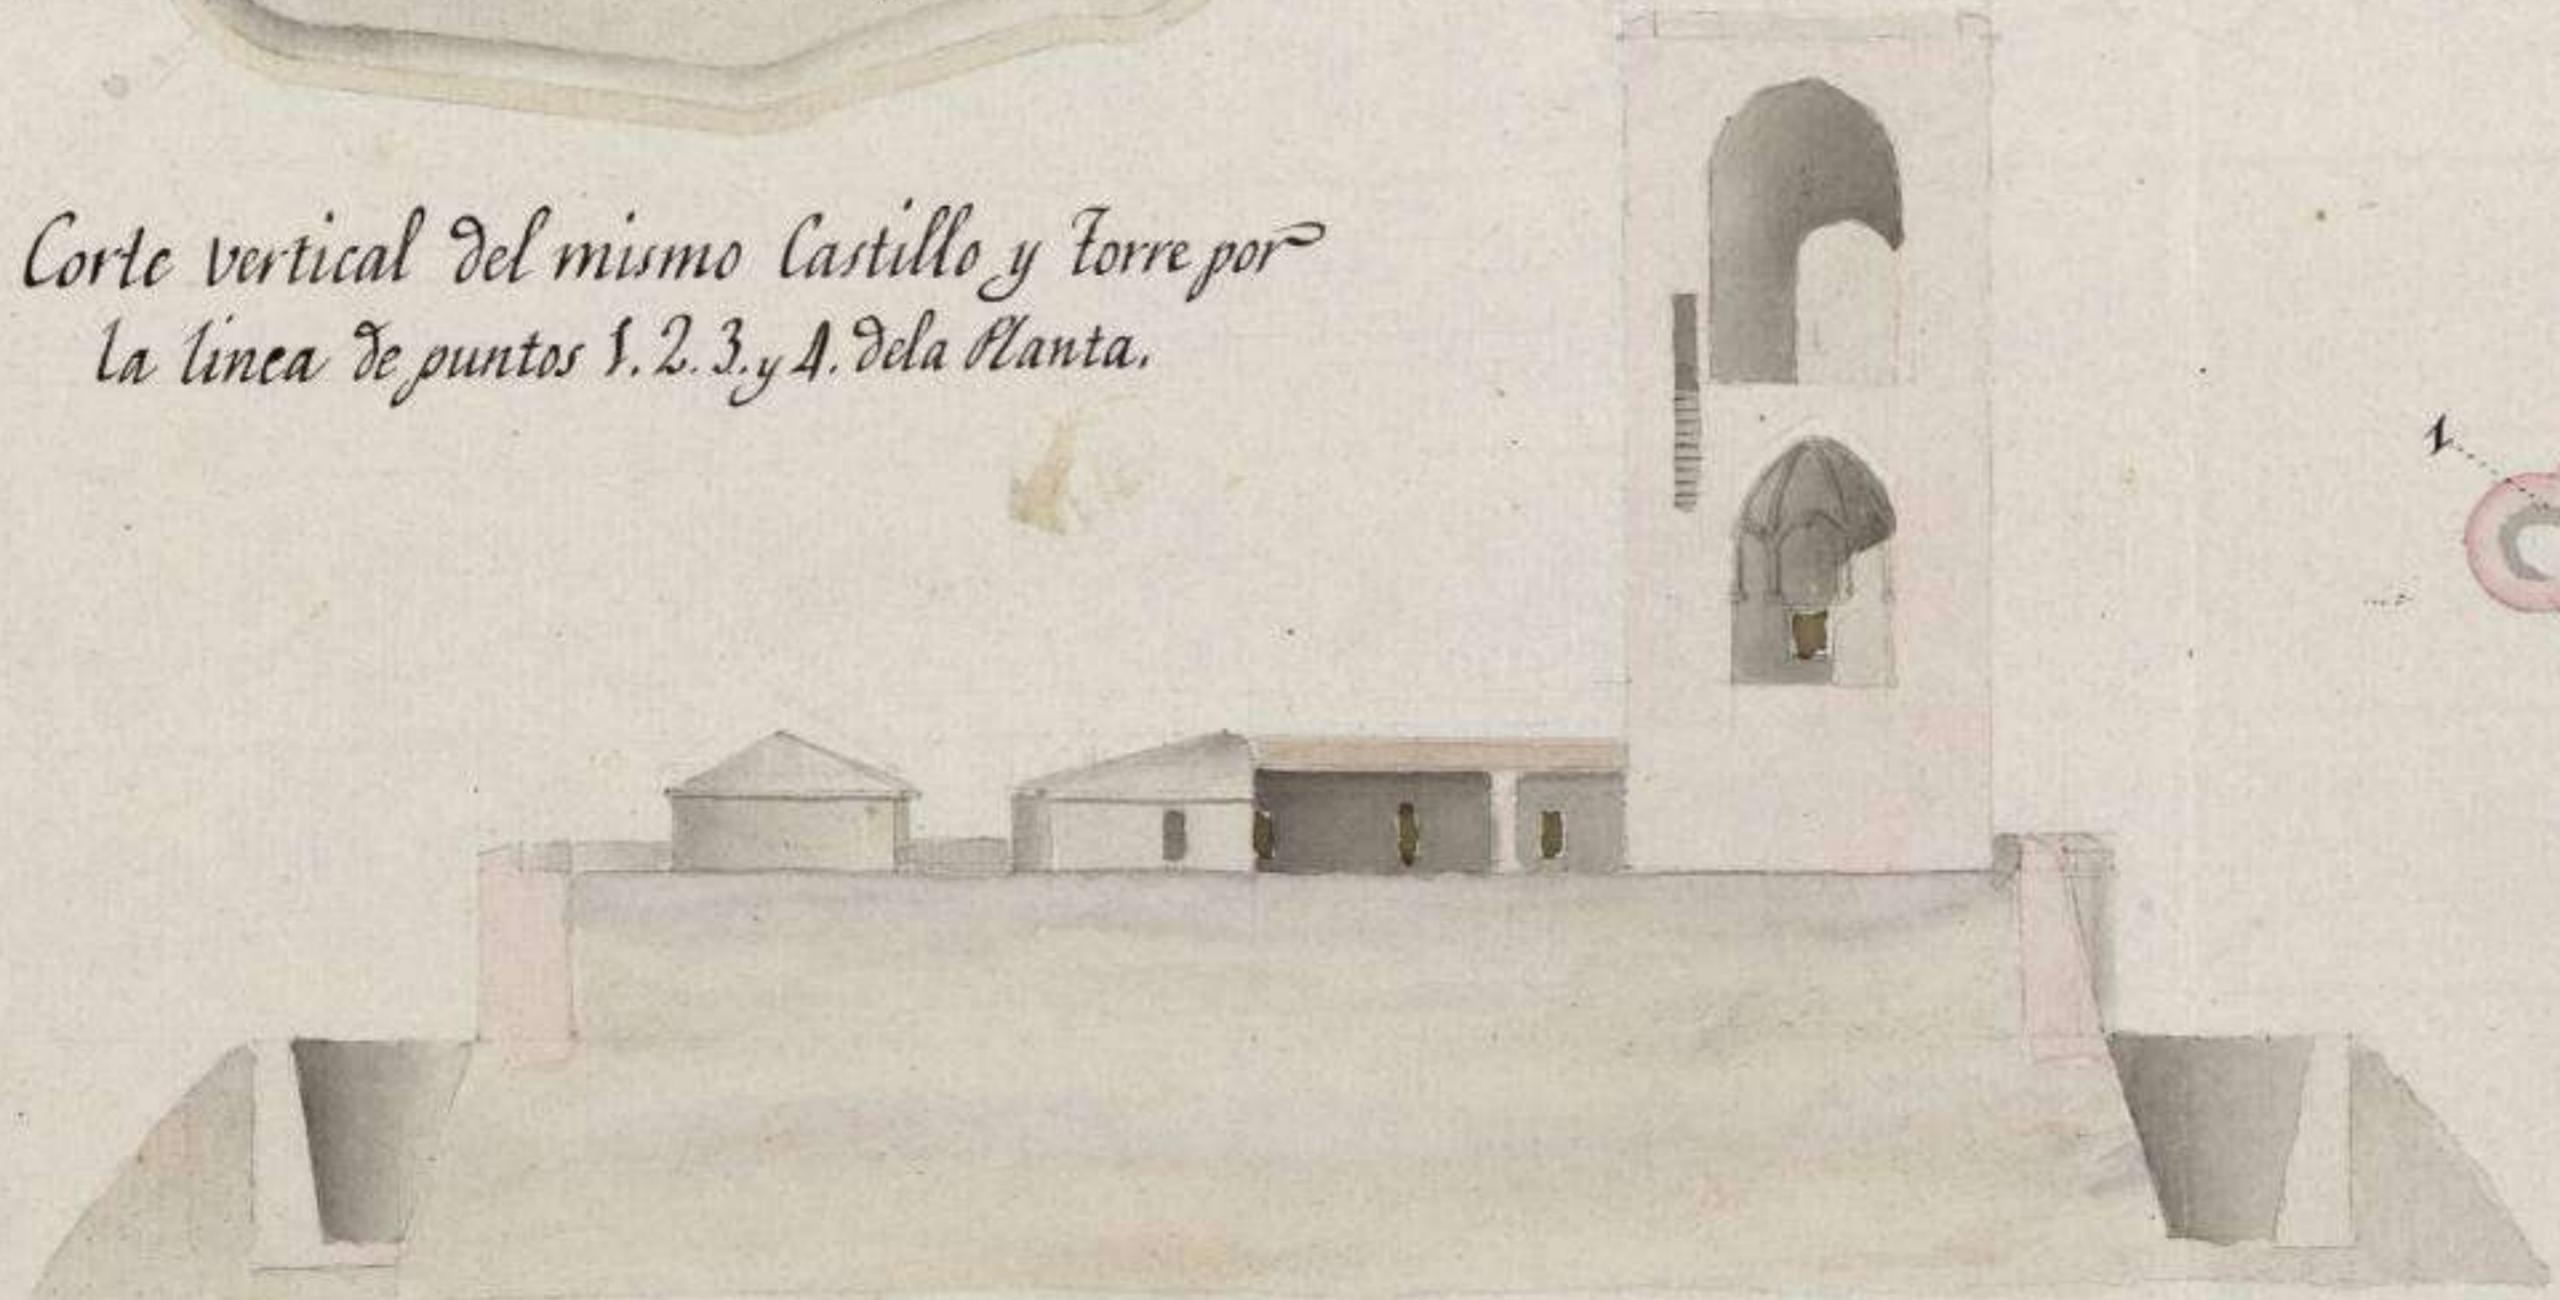 Corte vertical del mismo Castillo y Torre por
la linea de puntos 1. 2. 3. y 4. dela Planta.
1